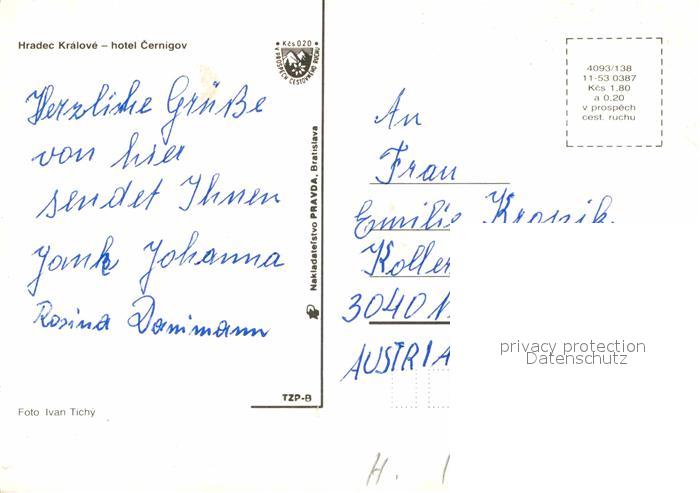 Hradec Králové – hotel Černigov
Kčs 0,20
PROSPĚCH CESTOVNÉHO RUCHU
Herzliche Grüße
von hier
sendet Ihnen
Johanna
Rosina Danimann
Foto Ivan Tichý
Nakladateľstvo PRAVDA, Bratislava
TZP-B
4093/138
11-53 0387
Kčs 1.80
a 0.20
v prospěch
cest. ruchu
An
Frau
Emilie
Koller
3040 N
AUSTRIA
privacy protection
Datenschutz
H.